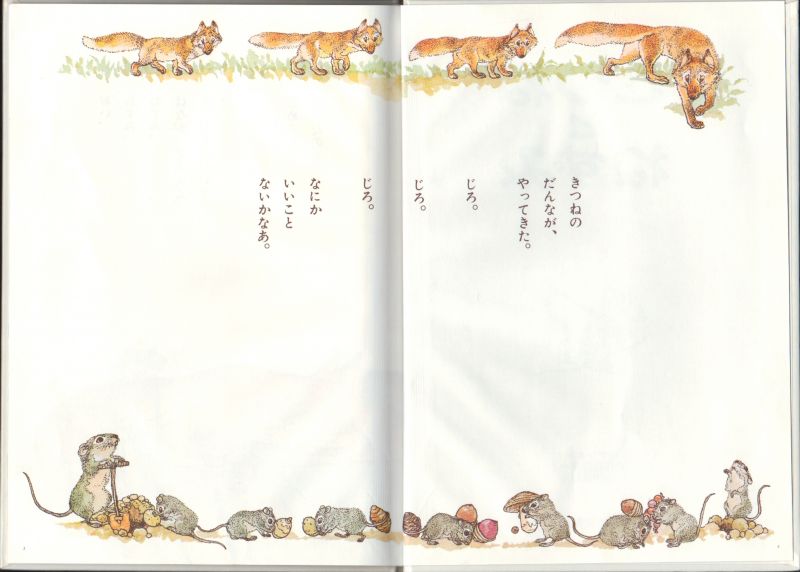 きつねの
だんなが、
やってきた。
じろ。
じろ。
じろ。
なにか
いいこと
ないかなあ。